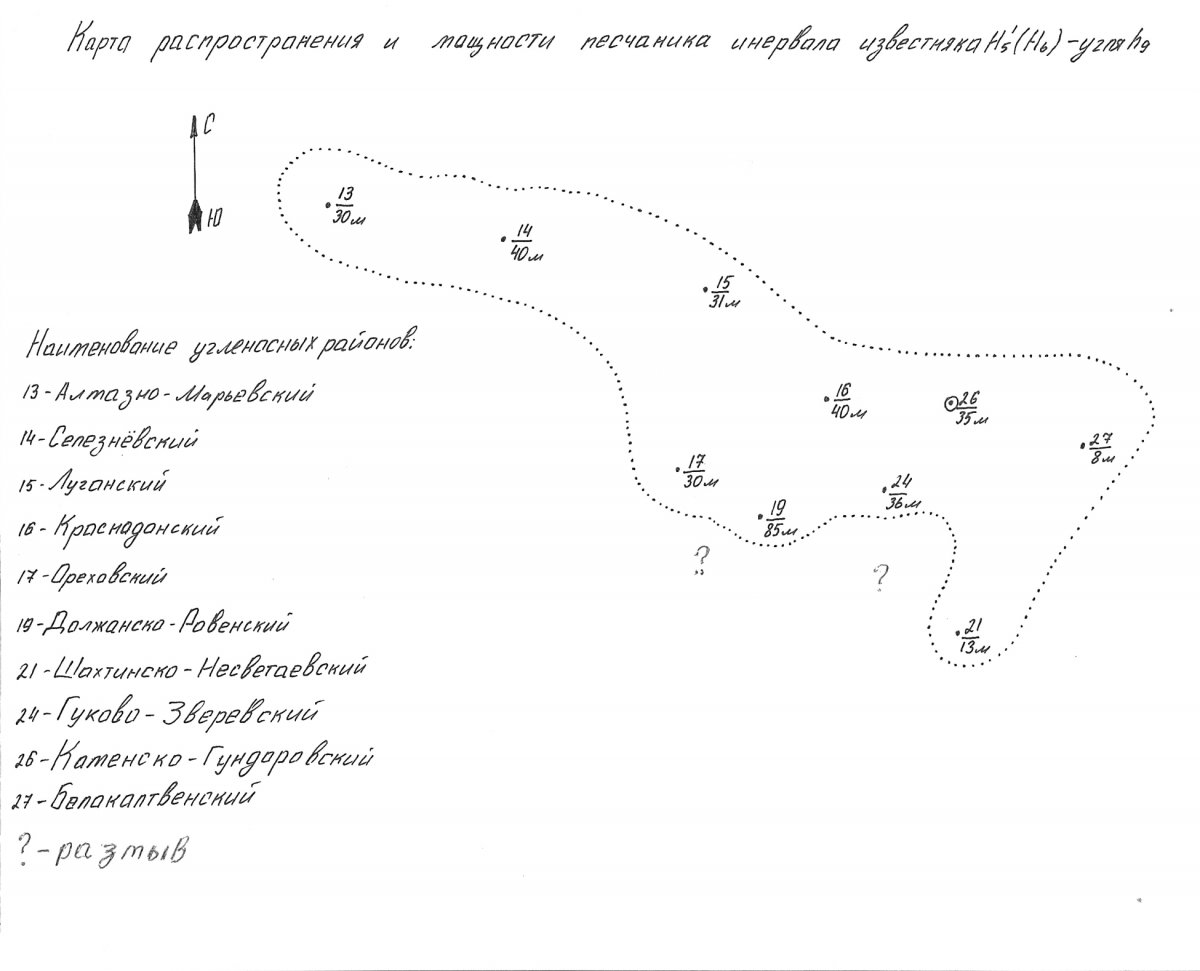 Карта распространения и мощности песчаника инервала известняка H₅'(H₆)-угля h₉
С
Ю
13
30м
14
40м
15
31м
16
40м
26
35м
27
8м
17
30м
24
36м
19
85м
?
?
21
13м
Наименование угленосных районов:
13-Алмазно-Марьевский
14-Селезнёвский
15-Луганский
16-Краснодонский
17-Ореховский
19-Должанско-Ровенский
21-Шахтинско-Несветаевский
24-Гуково-Зверевский
26-Каменско-Гундоровский
27-Белокалтвенский
?-размыв